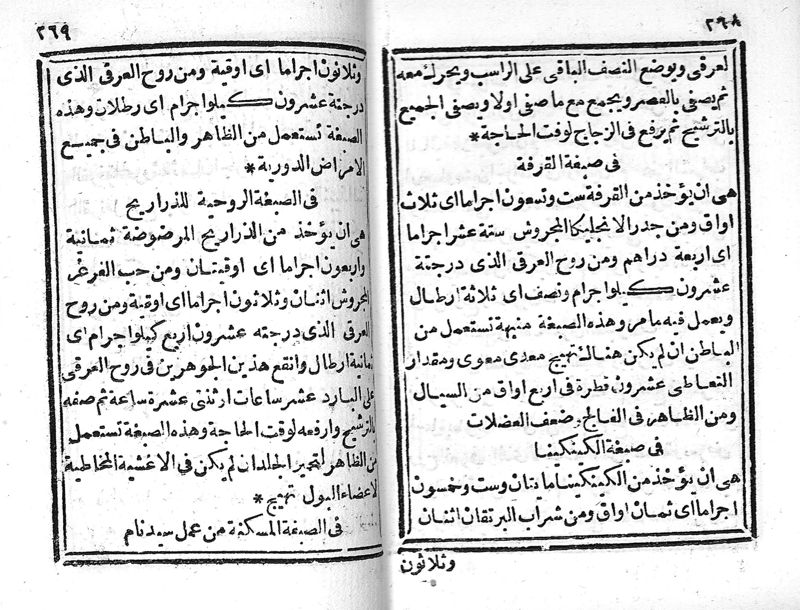 ٢٩٨
لعرقى ويوضع النصف الباقى على الراسب ويحرك معه
ثم يصفى بالعصر ويجمع مع ما صفى اولا ويصفى الجميع
بالترشيح ثم يرفع فى الزجاج لوقت الحاجة *
فى صبغة القرفة
هى ان يؤخذ من القرفة ست وتسعون اجراما اى ثلاث
اواق ومن جدر الانجليكا المجروش ستة عشر اجراما
اى اربعة دراهم ومن روح العرقى الذى درجتة
عشرون كيلوا جرام ونصف اى ثلاثة ارطال
ويعمل فيه ما مر وهذه الصبغة منبهة تستعمل من
الباطن ان لم يكن هنالة تهيج معدى معوى ومقدار
التعاطى عشرون قطرة فى اربع اواق من السيال
ومن الظاهر فى الفالج وضعف العضلات
فى صبغة الكينكينا
هى ان يؤخذ من الكينكينا مايتان وست وخمسون
اجراما اى ثمان اواق ومن شراب البرتقان اثنان
وثلاثون
٢٦٩
وثلاثون اجراما اى اوقية ومن روح العرقى الذى
درجتة عشرون كيلوا جرام اى رطلان وهذه
الصبغة تستعمل من الظاهر والباطن فى جميع
الامراض الدورية *
فى الصبغة الروحية للذراريح
هى ان يؤخذ من الذراريح المرضوضة ثمانية
واربعون اجراما اى اوقيتان ومن حب الفرغر
المجروش اثنان وثلاثون اجراما اى اوقية ومن روح
العرقى الذى درجته عشرون اربع كيلوا جرام اى
ثمانية ارطال وانقع هذين الجوهرين فى روح العرقى
على البارد عشر ساعات ار ثنتى عشرة ساعة ثم صفه
بالترشيح وارفعه لوقت الحاجة وهذه الصبغة تستعمل
من الظاهر لتحمير الجلد ان لم يكن فى الاغشية المخاطية
لاعضاء البول تهيج *
فى الصبغة المسكنة من عمل سيدنام